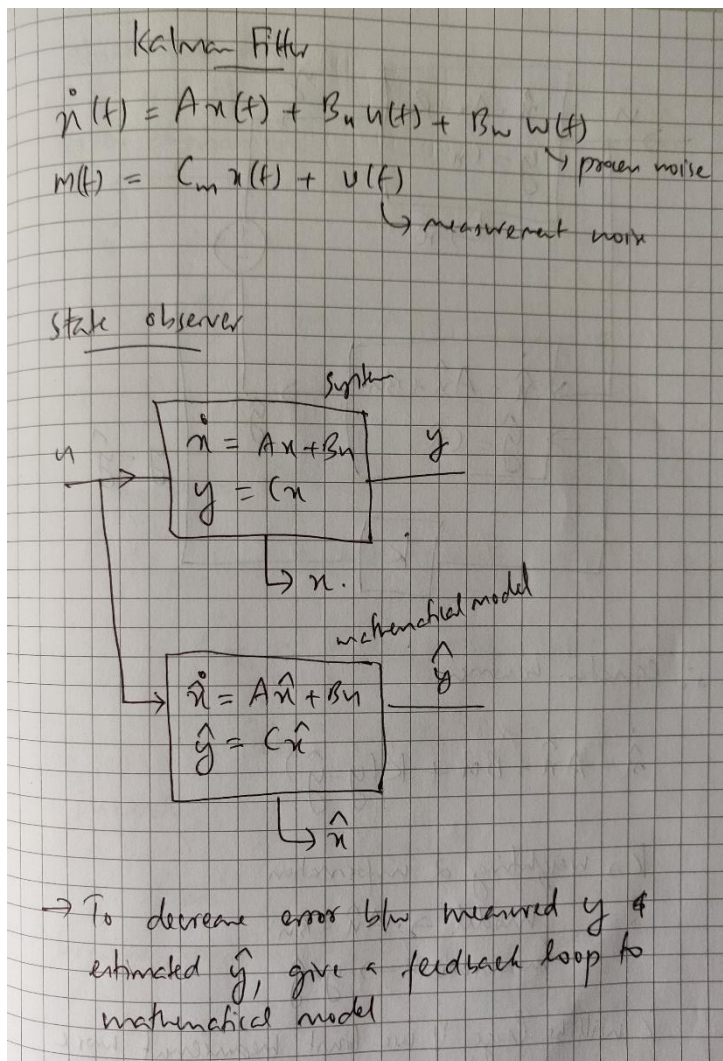 Kalman Filter
ẋ(t) = Ax(t) + Bᵤ u(t) + B_w w(t)
↳ process noise
m(t) = Cₘ x(t) + v(t)
↳ measurement noise
State observer
System
u
ẋ = Ax + Bu
y
y = Cx
↳ x.
mathematical model
x̂̇ = Ax̂ + Bu
ŷ
ŷ = Cx̂
↳ x̂
→ To decrease error b/w measured y &
estimated ŷ, give a feedback loop to
mathematical model